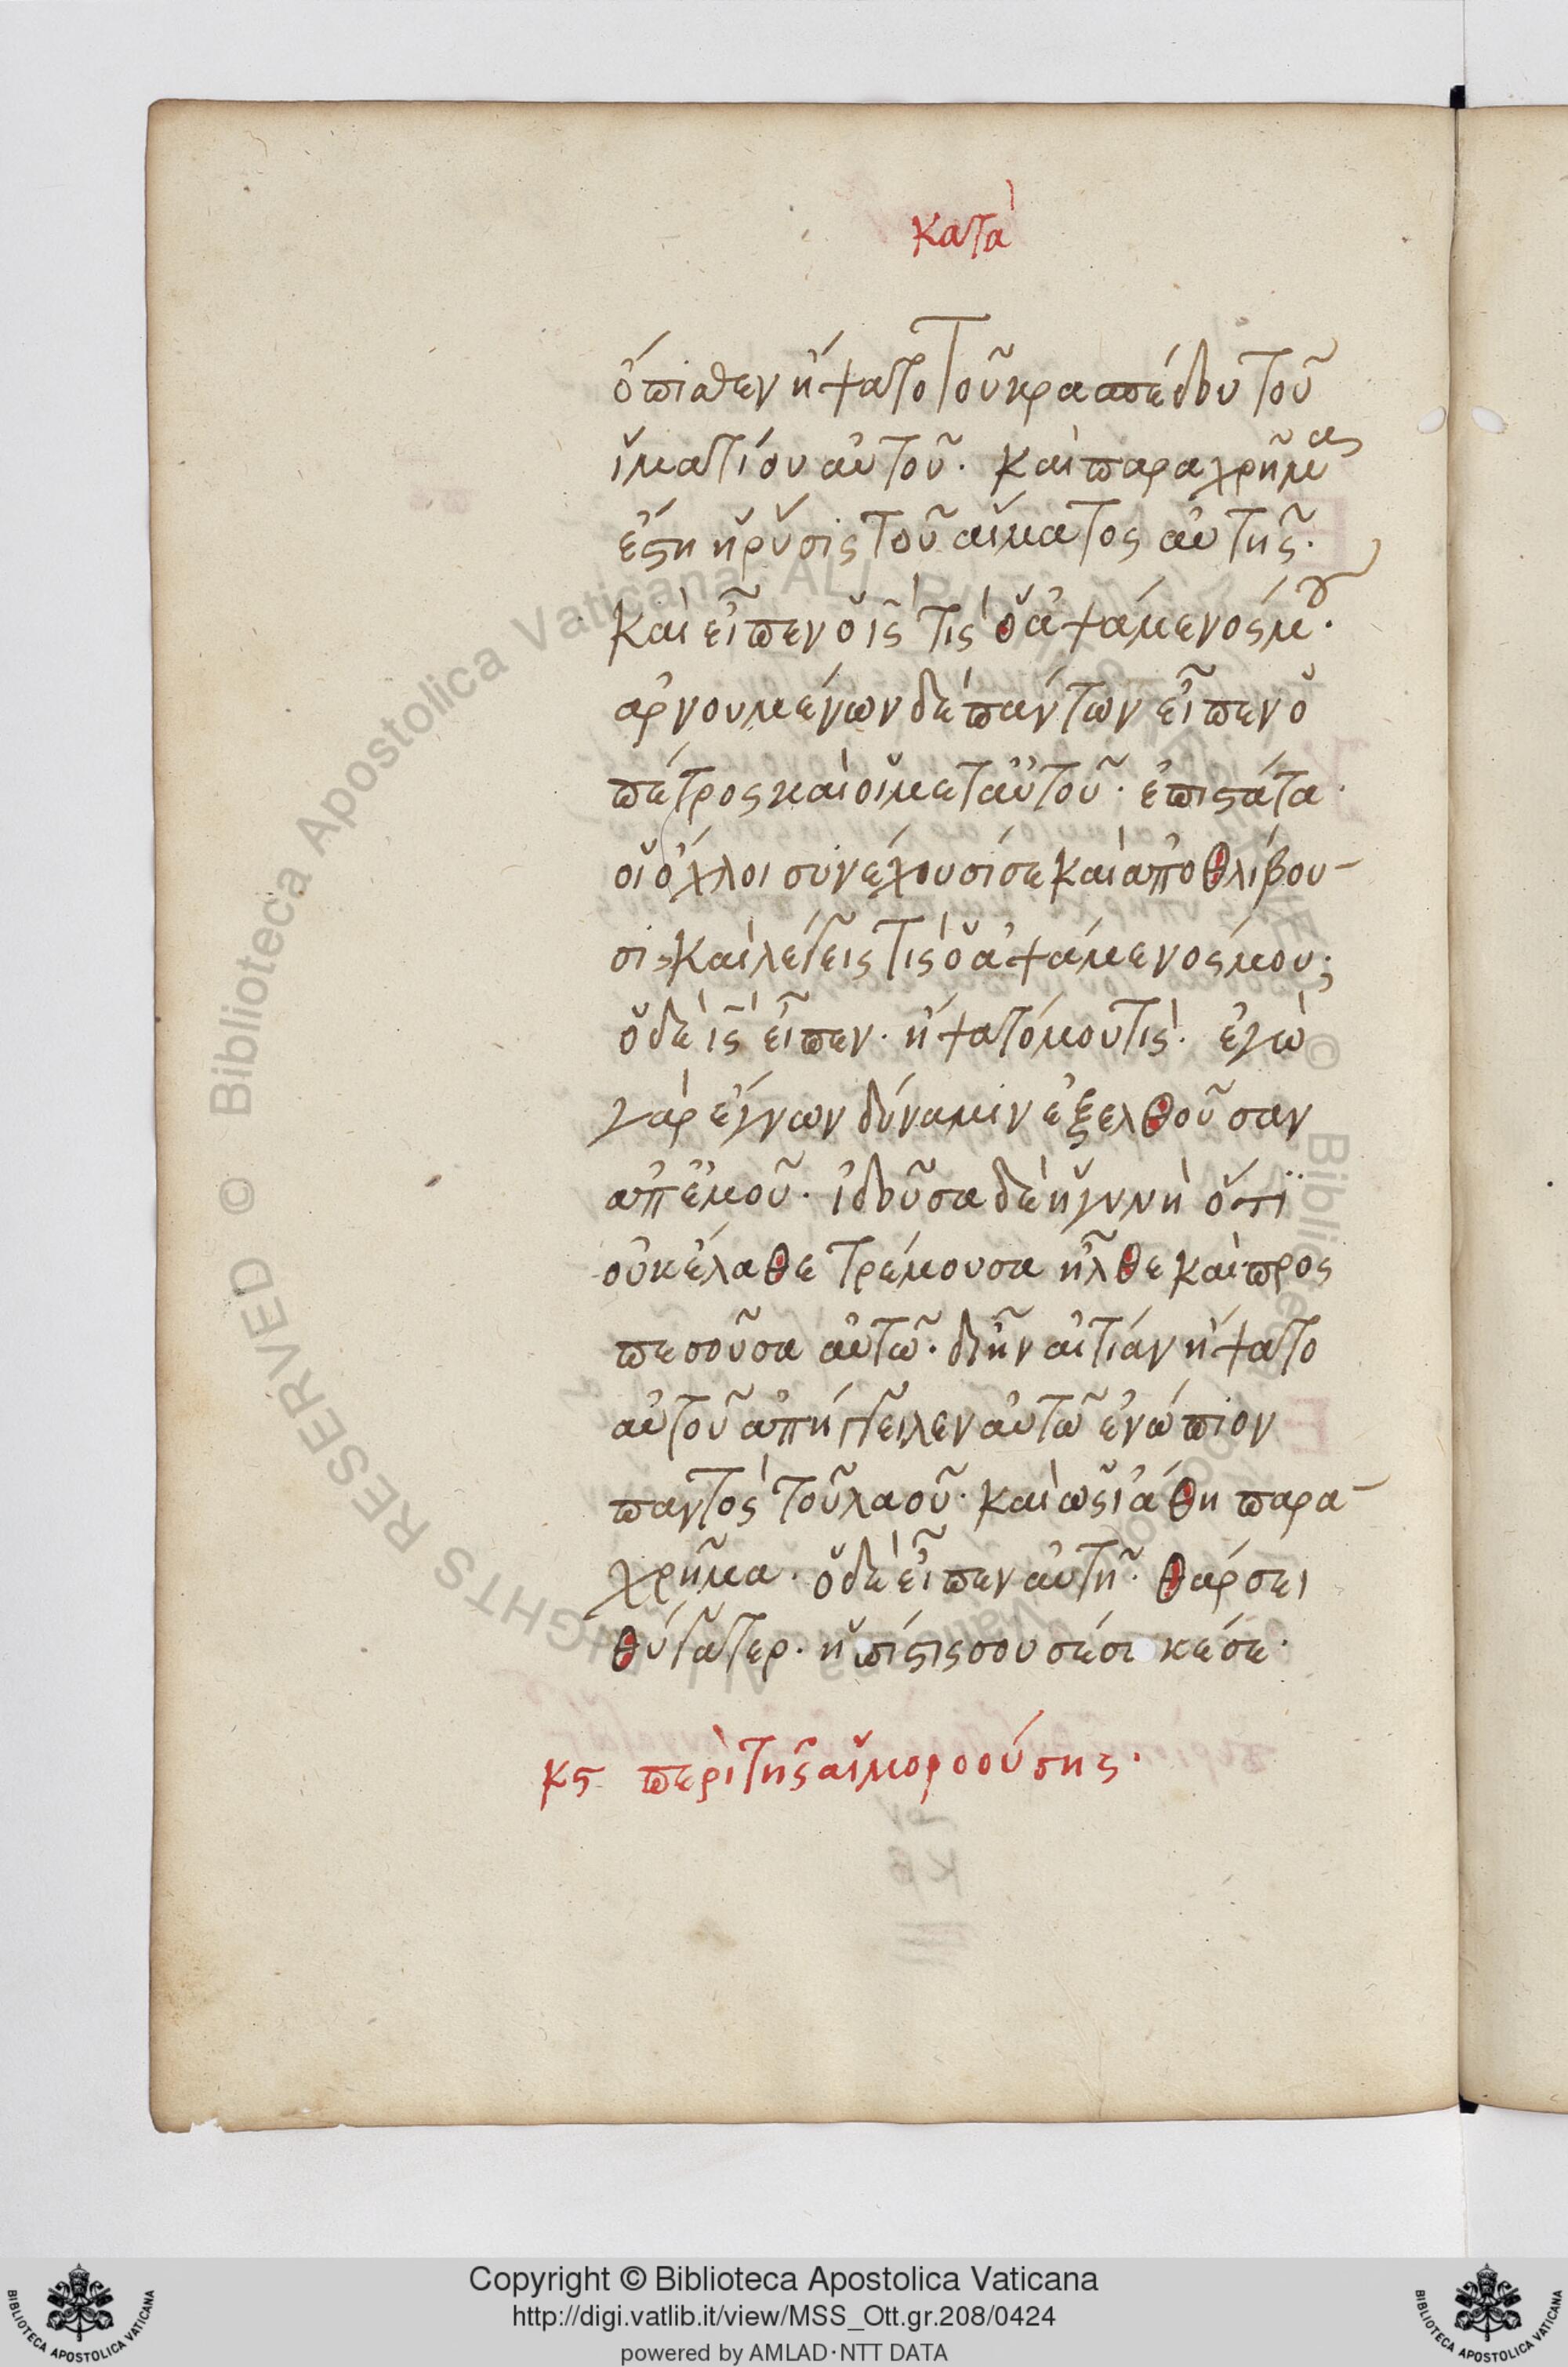 κατὰ
ὄπισθεν ἥψατο τοῦ κρασπέδου τοῦ
ἱματίου αὐτοῦ. καὶ παραχρῆμα
ἔστη ἡ ρύσις τοῦ αἵματος αὐτῆς.
καὶ εἶπεν ὁ ις̅ τίς ὁ ἁψάμενός μου.
αρνουμένων δὲ πάντων εἶπεν ὁ
πέτρος καὶ οἱ μετ αὐτοῦ. ἐπιστάτα.
οἱ ὄχλοι συνέχουσί σε καὶ ἀποθλίβου-
σι, καὶ λέγεις τίς ὁ ἁψάμενός μου;
ὁ δὲ ις̅ εἶπεν. ἥψατό μου τίς. ἐγὼ
γὰρ ἔγνων δύναμιν ἐξελθοῦσαν
ἀπ ἐμοῦ. ἰδοῦσα δὲ ἡ γυνὴ ὅτι
οὐκ ἔλαθε τρέμουσα ἦλθε καὶ προς
πεσοῦσα αὐτῶ. δι ἣν αἰτίαν ἥψατο
αὐτοῦ ἀπήγγειλεν αὐτῶ ἐνώπιον
παντὸς τοῦ λαοῦ. καὶ ὡς ἰάθη παρα-
χρῆμα. ὁ δὲ εἶπεν αὐτῆ. θάρσει
θύγατερ. ἡ πίστις σου σέσωκέ σε.
κς περὶ τῆς αἱμοροούσης.
Copyright © Biblioteca Apostolica Vaticana
http://digi.vatlib.it/view/MSS_Ott.gr.208/0424
powered by AMLAD·NTT DATA
BIBLIOTECA APOSTOLICA VATICANA
BIBLIOTECA APOSTOLICA VATICANA
© Biblioteca Apostolica Vaticana ALL RIGHTS RESERVED